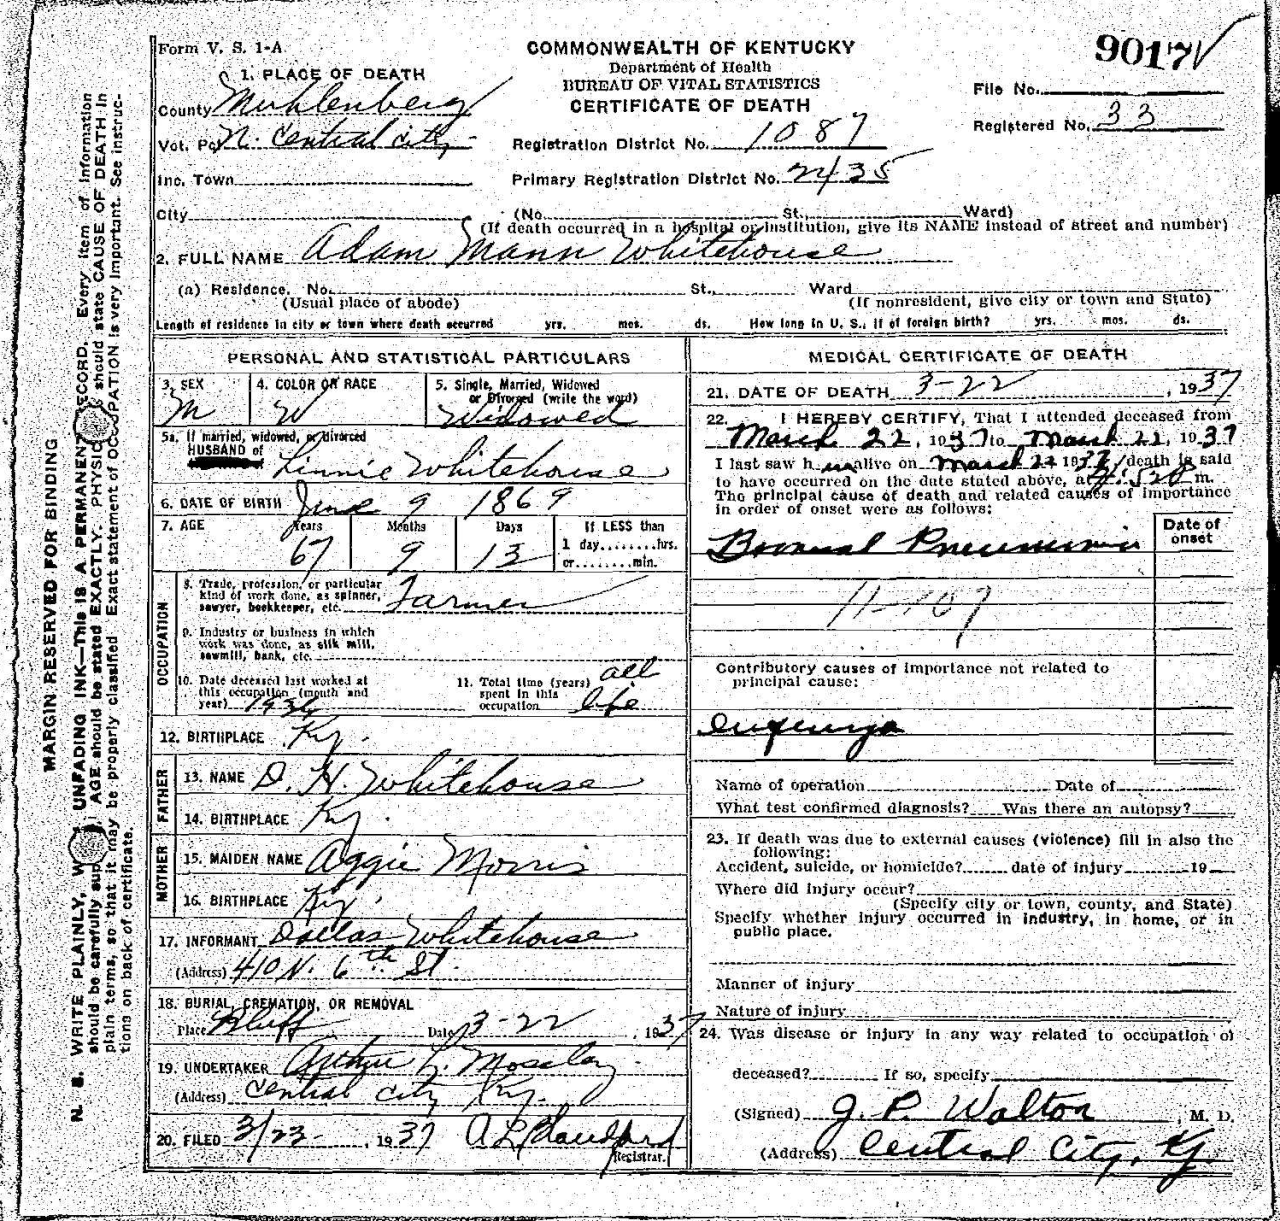 Form V. S. 1-A
COMMONWEALTH OF KENTUCKY
Department of Health
BUREAU OF VITAL STATISTICS
CERTIFICATE OF DEATH
9017
File No.
Registered No. 33
1. PLACE OF DEATH
County Muhlenberg
Vot. Pct N. Central City
Registration District No. 1087
Inc. Town
Primary Registration District No. 2435
City (No. St., Ward)
(If death occurred in a hospital or institution, give its NAME instead of street and number)
2. FULL NAME Adam Mann Whitehouse
(a) Residence. No. St., Ward
(Usual place of abode) (If nonresident, give city or town and State)
Length of residence in city or town where death occurred yrs. mos. ds. How long in U. S., if of foreign birth? yrs. mos. ds.
PERSONAL AND STATISTICAL PARTICULARS
3. SEX M
4. COLOR OR RACE W
5. Single, Married, Widowed
or Divorced (write the word)
Widowed
5a. If married, widowed, or divorced
HUSBAND of Linnie Whitehouse
6. DATE OF BIRTH June 9 1869
7. AGE Years Months Days If LESS than
67 9 13 1 day........hrs.
or........min.
OCCUPATION
8. Trade, profession, or particular
kind of work done, as spinner,
sawyer, bookkeeper, etc. Farmer
9. Industry or business in which
work was done, as silk mill,
sawmill, bank, etc.
10. Date deceased last worked at
this occupation (month and
year) 1936
11. Total time (years)
spent in this
occupation all life
12. BIRTHPLACE Ky.
FATHER
13. NAME D. H. Whitehouse
14. BIRTHPLACE Ky.
MOTHER
15. MAIDEN NAME Aggie Morris
16. BIRTHPLACE Ky.
17. INFORMANT Dallas Whitehouse
(Address) 410 N. 6th St.
18. BURIAL, CREMATION, OR REMOVAL
Place Bluff Date 3-22, 1937
19. UNDERTAKER Arthur L. Moseley
(Address) Central City Ky.
20. FILED 3/23-, 1937 A L Blandford
Registrar.
MEDICAL CERTIFICATE OF DEATH
21. DATE OF DEATH 3-22, 1937
22. I HEREBY CERTIFY, That I attended deceased from
March 22, 1937 to March 22, 1937
I last saw him alive on March 22 1937, death is said
to have occurred on the date stated above, at m.
The principal cause of death and related causes of importance
in order of onset were as follows:
Date of
onset
Pneumonia
11-107
Contributory causes of importance not related to
principal cause:
Name of operation Date of
What test confirmed diagnosis? Was there an autopsy?
23. If death was due to external causes (violence) fill in also the
following:
Accident, suicide, or homicide? date of injury 19
Where did injury occur?
(Specify city or town, county, and State)
Specify whether injury occurred in industry, in home, or in
public place.
Manner of injury
Nature of injury
24. Was disease or injury in any way related to occupation of
deceased? If so, specify
(Signed) J. P. Walton, M. D.
(Address) Central City, Ky.
MARGIN RESERVED FOR BINDING
N. B. WRITE PLAINLY, UNFADING INK—This IS A PERMANENT RECORD. Every item of information
should be carefully AGE should be stated EXACTLY. should state CAUSE OF DEATH in
plain terms, so that it may be properly classified. Exact statement of OCCUPATION is very important. See instruc-
tions on back of certificate.